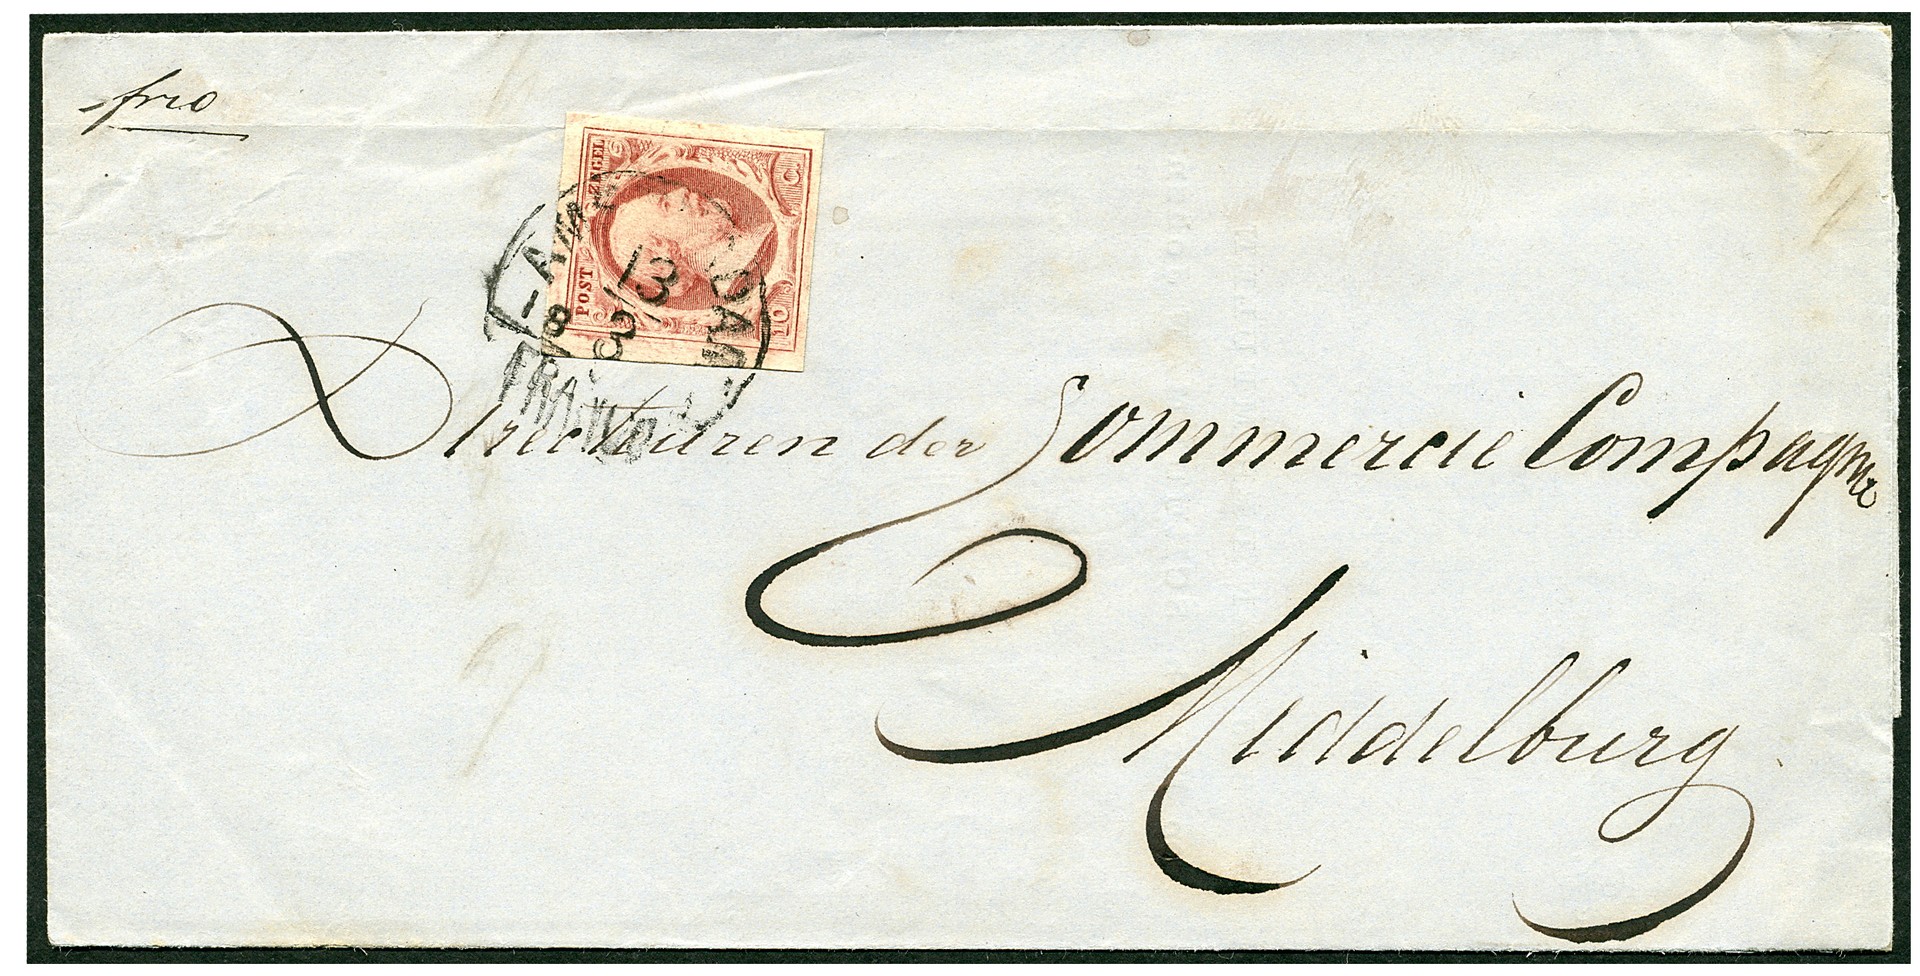 frco
POST ZEGEL
10 C
AMSTERDAM
13/3
18
FRANCO
Directeuren der Commercie Compagnie
Middelburg